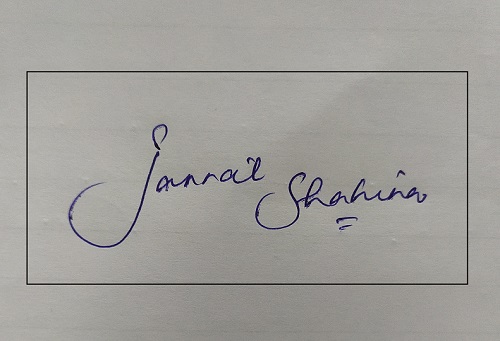 Jannat Shahina